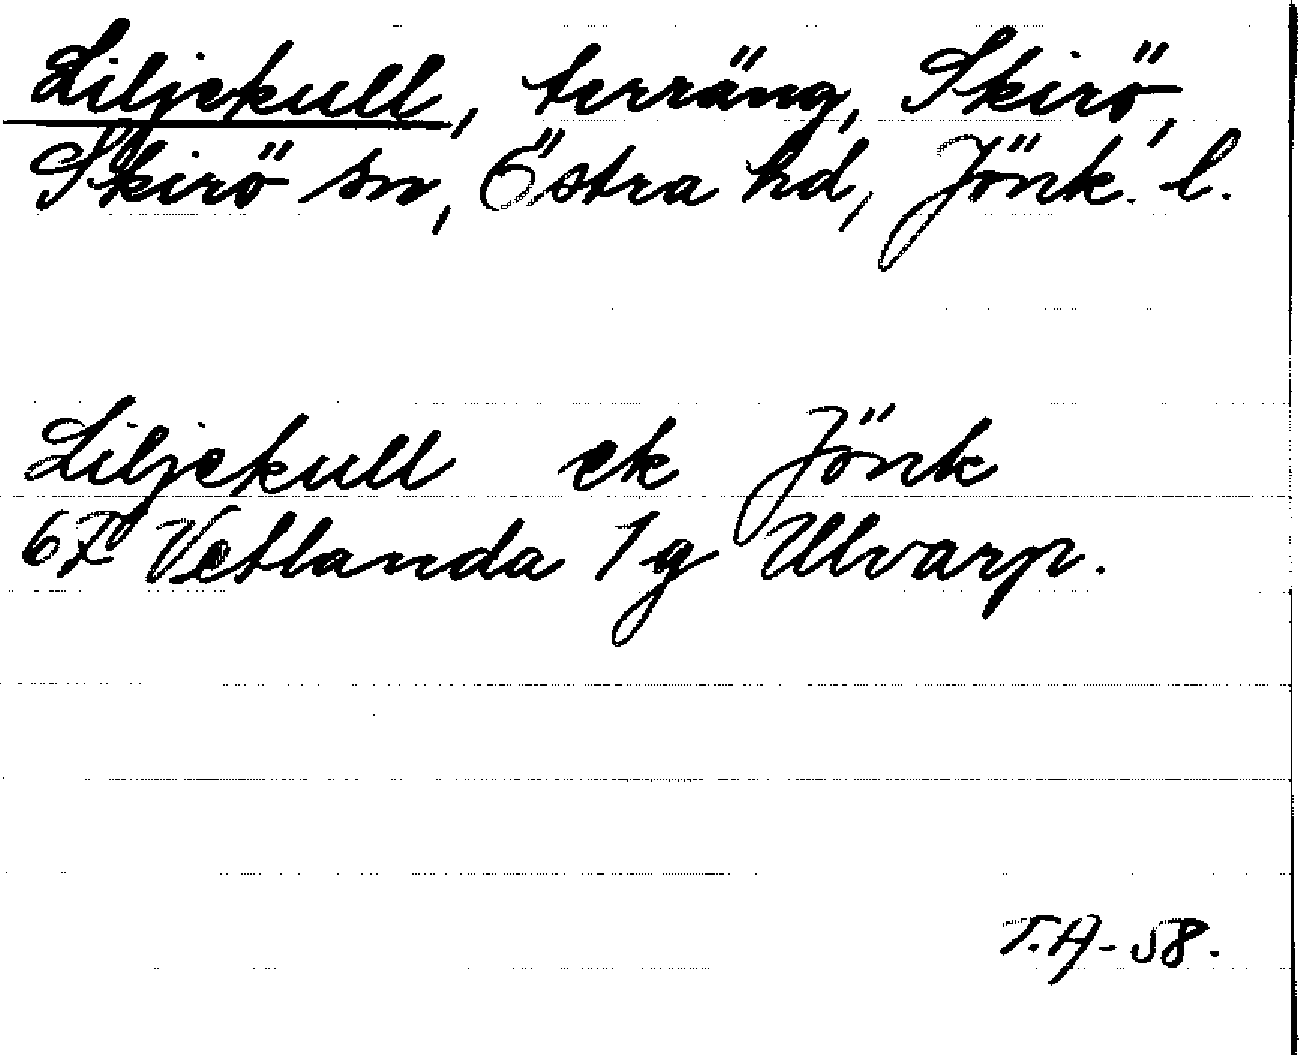 Liljekull, terräng, Skirö,
Skirö sn, Östra hd, Jönk. l.
Liljekull ek Jönk
67 Vetlanda 1g Ulvarp.
T.A-58.